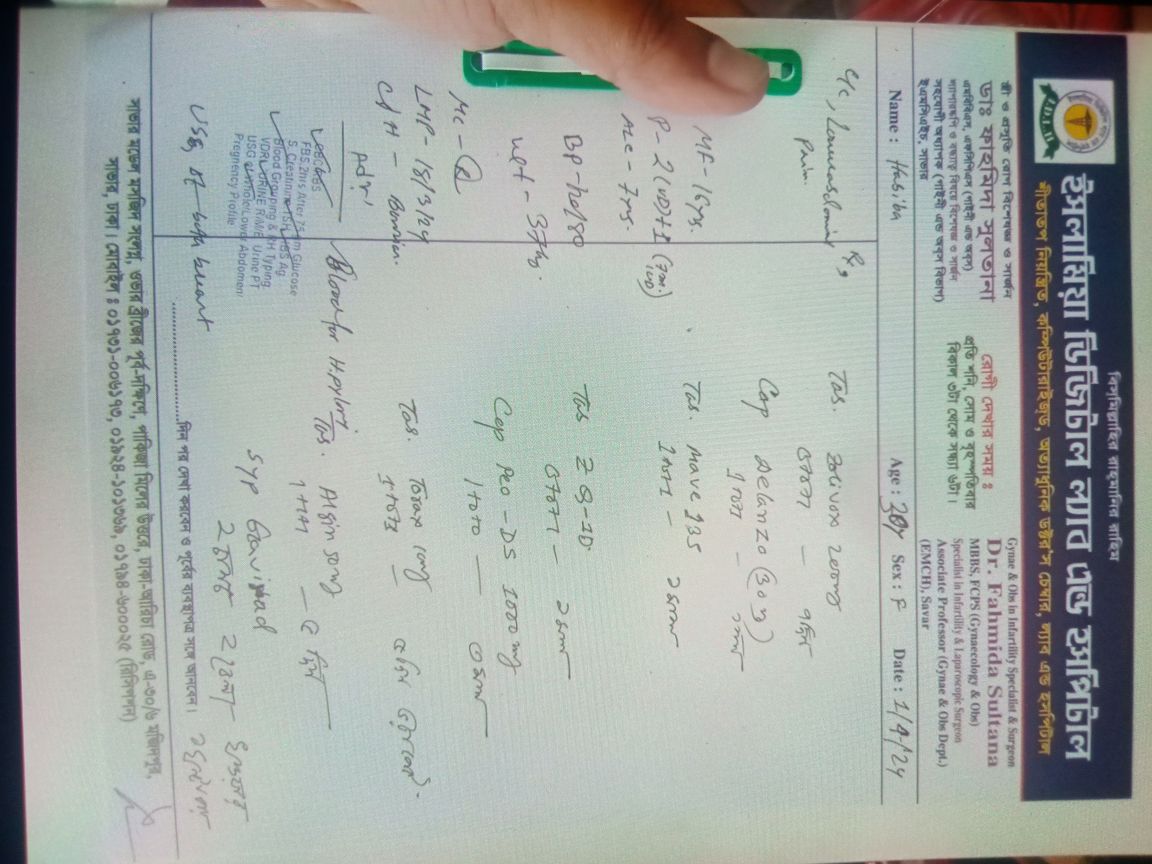 বিসমিল্লাহির রাহমানির রাহিম
ইসলামিয়া ডিজিটাল ল্যাব এন্ড হসপিটাল
শীতাতপ নিয়ন্ত্রিত, কম্পিউটারাইজড, অত্যাধুনিক ডক্টর'স চেম্বার, ল্যাব এন্ড হসপিটাল
I.D.L.H
স্ত্রী ও প্রসূতি রোগ বিশেষজ্ঞ ও সার্জন
ডাঃ ফাহমিদা সুলতানা
এমবিবিএস, এফসিপিএস (গাইনী এন্ড অবস)
ল্যাপারস্কপি ও বন্ধ্যাত্ব বিষয়ে বিশেষজ্ঞ ও সার্জন
সহযোগী অধ্যাপক (গাইনী এন্ড অব্স বিভাগ)
ইএমসিএইচ, সাভার
রোগী দেখার সময় ঃ
প্রতি শনি, সোম ও বৃহস্পতিবার
বিকাল ৩টা থেকে সন্ধ্যা ৬টা।
Gynae & Obs in Infartility Specialist & Surgeon
Dr. Fahmida Sultana
MBBS, FCPS (Gynaecology & Obs)
Specialist in Infartility & Laparoscopic Surgeon
Associate Professor (Gynae & Obs Dept.)
(EMCH), Savar
Name : Hasiba Age : 30y Sex : F Date : 1/4/24
C/C, Lower abdominal
Pain.
MF - 16 yrs.
P - 2 (VD) + 1 (7m. IUD)
ALC - 7 yrs.
BP -
wt - 37 kg.
MC - R
LMP - 18/3/24
C/H - Barrier.
Adv:
CBC RBS
FBS, 2hrs After 75 gm Glucose
S. Creatinine TSH HBS Ag
Blood Grouping & RH Typing.
VDRL URINE R/M/E Urine PT
USG of Whole/Lower Abdomen/
Pregnency Profile
Blood for H.pylori
USG of both breast
Rx,
Tab.
Cap Delanzo (30 mg)
1+0+1 —
Tab.
1+0+1 — ১ মাস
Tab
০+০+১ — ১ মাস
Cap 1000 mg
1+0+0 — ৩ মাস
Tab. Torax 10mg
1+0+1 —
Tab. Algin 50mg
1+1+1 — ৫ দিন
Syp Gavisad
২ চামচ ২ বেলা খাওয়ার
১ ঘন্টা পর
....................দিন পর দেখা করবেন ও পূর্বের ব্যবস্থাপত্র সঙ্গে আনবেন।
সাভার মডেল মসজিদ সংলগ্ন, ওভার ব্রীজের পূর্ব-দক্ষিণে, পাকিজা মিলের উত্তরে, ঢাকা-আরিচা রোড, এ-৩০/৬ মজিদপুর,
সাভার, ঢাকা। মোবাইল ঃ ০১৭৩১-০০৬১৭৩, ০১৯২৪-১০১৩৬৯, ০১৭৯৪-৬০০০২৫ (রিসিপশন)